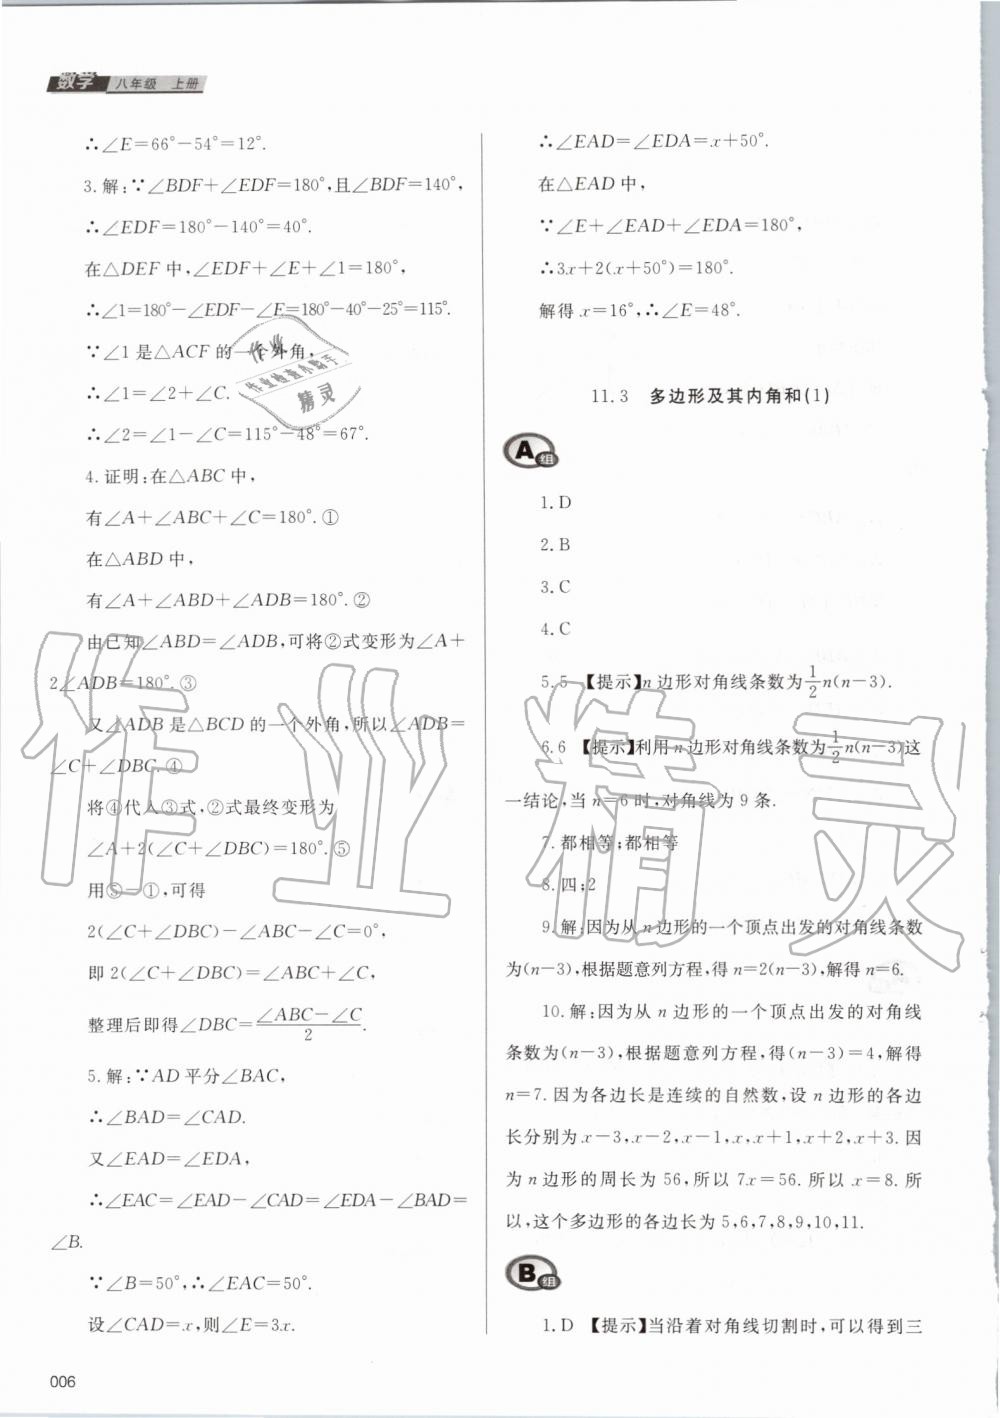 数学 八年级 上册
∴∠E=66°-54°=12°.
3.解:∵∠BDF+∠EDF=180°,且∠BDF=140°,
∴∠EDF=180°-140°=40°.
在△DEF中,∠EDF+∠E+∠1=180°,
∴∠1=180°-∠EDF-∠E=180°-40°-25°=115°.
∵∠1是△ACF的一个外角,
∴∠1=∠2+∠C.
∴∠2=∠1-∠C=115°-48°=67°.
4.证明:在△ABC中,
有∠A+∠ABC+∠C=180°.①
在△ABD中,
有∠A+∠ABD+∠ADB=180°.②
由已知∠ABD=∠ADB,可将②式变形为∠A+
2∠ADB=180°.③
又∠ADB是△BCD的一个外角,所以∠ADB=
∠C+∠DBC.④
将④代入③式,②式最终变形为
∠A+2(∠C+∠DBC)=180°.⑤
用⑤-①,可得
2(∠C+∠DBC)-∠ABC-∠C=0°,
即2(∠C+∠DBC)=∠ABC+∠C,
整理后即得∠DBC=(∠ABC-∠C)/2.
5.解:∵AD平分∠BAC,
∴∠BAD=∠CAD.
又∠EAD=∠EDA,
∴∠EAC=∠EAD-∠CAD=∠EDA-∠BAD=
∠B.
∵∠B=50°,∴∠EAC=50°.
设∠CAD=x,则∠E=3x.
006
∴∠EAD=∠EDA=x+50°.
在△EAD中,
∵∠E+∠EAD+∠EDA=180°,
∴3x+2(x+50°)=180°.
解得x=16°,∴∠E=48°.
11.3 多边形及其内角和(1)
A组
1.D
2.B
3.C
4.C
5.5 【提示】n边形对角线条数为1/2n(n-3).
6.6 【提示】利用n边形对角线条数为1/2n(n-3)这
一结论,当n=6时,对角线为9条.
7.都相等;都相等
8.四;2
9.解:因为从n边形的一个顶点出发的对角线条数
为(n-3),根据题意列方程,得n=2(n-3),解得n=6.
10.解:因为从n边形的一个顶点出发的对角线
条数为(n-3),根据题意列方程,得(n-3)=4,解得
n=7.因为各边长是连续的自然数,设n边形的各边
长分别为x-3,x-2,x-1,x,x+1,x+2,x+3.因
为n边形的周长为56,所以7x=56.所以x=8.所
以,这个多边形的各边长为5,6,7,8,9,10,11.
B组
1.D 【提示】当沿着对角线切割时,可以得到三
作业精灵
作业
作业检查小助手
精灵